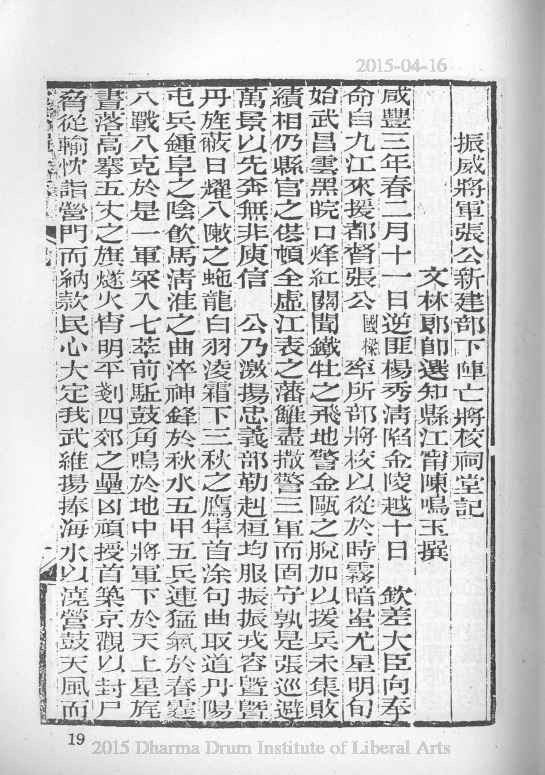 2015-04-16
振威將軍張公新建部下陣亡將校祠堂記
文林郎即選知縣江甯陳鳴玉撰
咸豐三年春二月十一日逆匪楊秀清陷金陵越十日 欽差大臣向奉
命自九江來援都督張公 國樑 率所部將校以從於時霧暗蚩尤星明旬
始武昌雲黑皖口烽紅關聞鐵牡之飛地警金甌之脫加以援兵未集敗
績相仍縣官之偫頓全虛江表之藩雝盡撤警三軍而固守孰是張巡避
萬景以先奔無非庾信 公乃激揚忠義部勒赳桓均服振振戎容曁曁
丹旌蔽日耀八陬之虵龍白羽淩霜下三秋之鷹隼首涂句曲取道丹陽
屯兵鍾阜之陰飲馬淸淮之曲淬神鋒於秋水五甲五兵連猛氣於春霆
八戰八克於是一軍罙入七萃前䮂鼓角鳴於地中將軍下於天上星旄
晝落高搴五丈之旗燧火宵明平剗四郊之壘凶頑授首築京觀以封尸
脅從輸忱詣營門而納款民心大定我武維揚捧海水以澆營鼓天風而
19
2015 Dharma Drum Institute of Liberal Arts